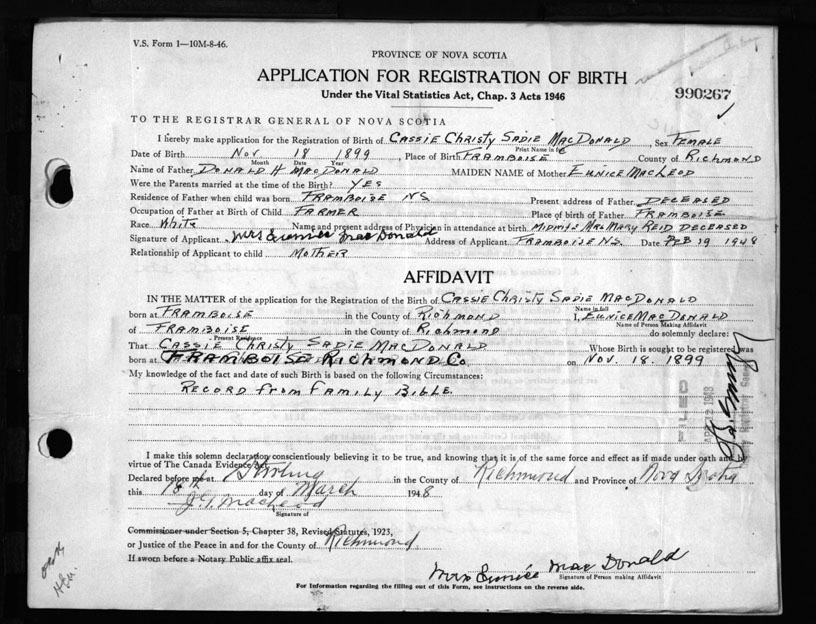 V.S. Form 1—10M-8-46.
PROVINCE OF NOVA SCOTIA
APPLICATION FOR REGISTRATION OF BIRTH
Under the Vital Statistics Act, Chap. 3 Acts 1946
990267
TO THE REGISTRAR GENERAL OF NOVA SCOTIA
I hereby make application for the Registration of Birth of CASSIE CHRISTY SADIE MACDONALD Sex FEMALE
Print Name in full
Date of Birth NOV. 18 1899, Place of Birth FRAMBOISE County of RICHMOND
Month Date Year
Name of Father DONALD H MACDONALD MAIDEN NAME of Mother EUNICE MACLEOD
Were the Parents married at the time of the Birth? YES
Residence of Father when child was born FRAMBOISE NS Present address of Father DECEASED
Occupation of Father at Birth of Child FARMER Place of birth of Father FRAMBOISE
Race White Name and present address of Physician in attendance at birth MIDWIFE MRS MARY REID DECEASED
Signature of Applicant Mrs Eunice MacDonald Address of Applicant FRAMBOISE N.S. Date FEB 19 1948
Relationship of Applicant to child MOTHER
AFFIDAVIT
IN THE MATTER of the application for the Registration of the Birth of CASSIE CHRISTY SADIE MACDONALD
Name in full
born at FRAMBOISE in the County of RICHMOND I, EUNICE MACDONALD
Name of Person Making Affidavit
of FRAMBOISE in the County of RICHMOND do solemnly declare:
Present Residence
That CASSIE CHRISTY SADIE MACDONALD Whose Birth is sought to be registered was
born at FRAMBOISE RICHMOND Co. on NOV. 18. 1899
My knowledge of the fact and date of such Birth is based on the following Circumstances:
RECORD FROM FAMILY BIBLE.
FILED
APR 12 1948
I make this solemn declaration conscientiously believing it to be true, and knowing that it is of the same force and effect as if made under oath and by
virtue of The Canada Evidence Act.
Declared before me at Stirling in the County of Richmond and Province of Nova Scotia
this 18th day of March 1948
J. G. MacLeod
Signature of
Commissioner under Section 5, Chapter 38, Revised Statutes, 1923,
or Justice of the Peace in and for the County of Richmond
If sworn before a Notary Public affix seal.
Mrs Eunice MacDonald
Signature of Person making Affidavit
For Information regarding the filling out of this Form, see instructions on the reverse side.